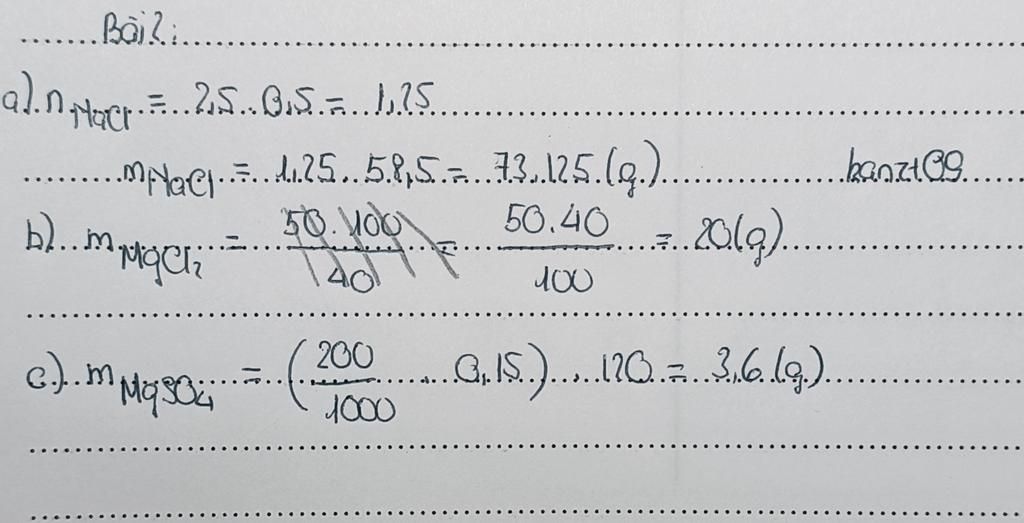 Bài 2:
a) n NaCl = 2,5 . 0,5 = 1,25
m NaCl = 1,25 . 58,5 = 73,125 (g) kanzt09
b) m MgCl₂ = 50.100/40 = 50.40/100 = 20(g)
c) m MgSO₄ = (200/1000 . 0,15) . 120 = 3,6 (g)